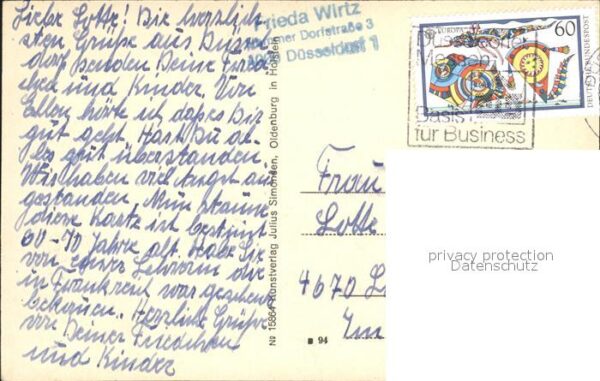 Liebe Lotte! Die herzlich-
sten Grüße aus Düssel
dorf senden Deine Fried
chen und Kinder. Von
Ellen hörte ich daß es Dir
gut geht. Hast Du al-
les gut überstanden.
Wir haben viel Angst aus
gestanden. Nun staune
diese Karte ist bestimmt
60-70 Jahre alt. Habe sie
von einer Lehrerin die
in Frankreich war geschenkt
bekommen. Herzliche Grüße
von Deiner Friedchen
und Kinder
Frieda Wirtz
Dorfstraße 3
Düsseldorf 1
№ 15864 Kunstverlag Julius Simonsen, Oldenburg in Holstein
94
EUROPA
60
DEUTSCHE BUNDESPOST
Düsseldorfer
Messen
Basis
für Business
Frau
Lotte
4670
privacy protection
Datenschutz